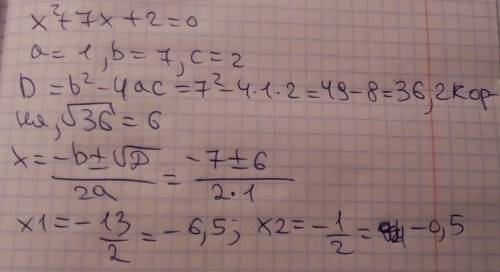 x²+7x+2=0
a=1, b=7, c=2
D=b²-4ac=7²-4·1·2=49-8=36, 2 кор-
ня, √36=6
x=(-b±√D)/(2a)=(-7±6)/(2·1)
x1=-13/2=-6,5; x2=-1/2=-0,5